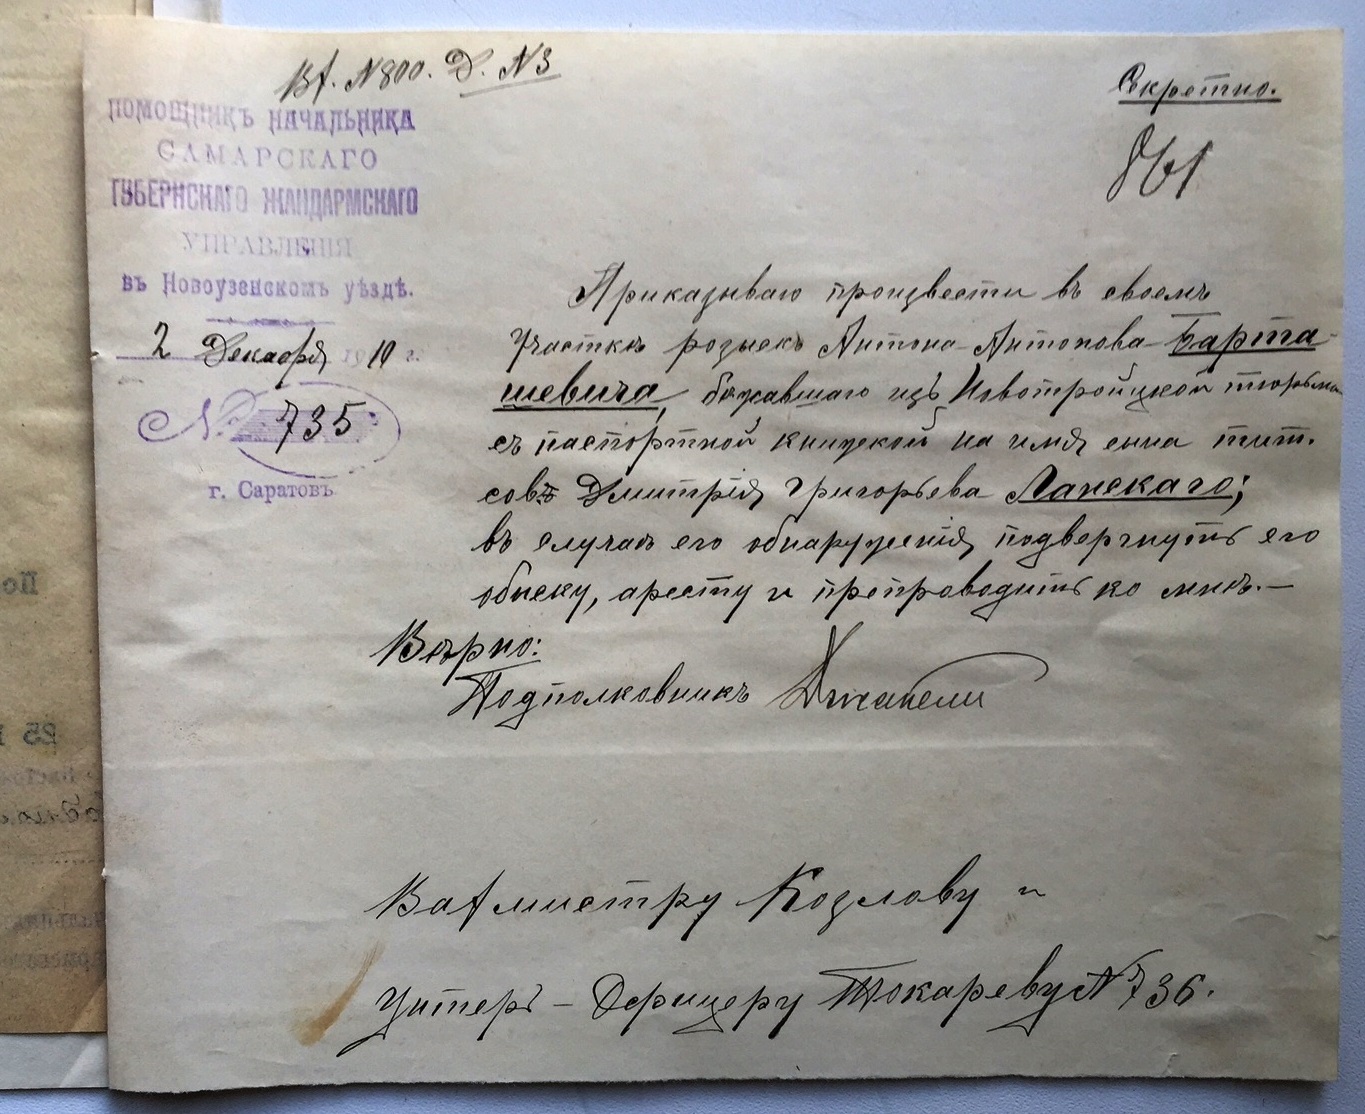 Вх. N 800. Д. N 3
Секретно.
861
ПОМОЩНИКЪ НАЧАЛЬНИКА
САМАРСКАГО
ГУБЕРНСКАГО ЖАНДАРМСКАГО
УПРАВЛЕНІЯ
въ Новоузенскомъ уѣздѣ.
2 Декабря 1910 г.
№ 735
г. Саратовъ
Приказываю произвести въ своемъ
участкѣ розыскъ Антона Антонова Барта-
шевича, бежавшаго изъ Новотройцкой тюрьмы
съ паспортной книжкой на имя сына тит.
сов. Дмитрія Григорьева Ланскаго;
въ случаѣ его обнаруженія, подвергнуть его
обыску, аресту и препроводить ко мнѣ.—
Вѣрно:
Подполковникъ
Вахмистру Козлову и
Унтеръ-Офицеру Токареву N 736.
По
25